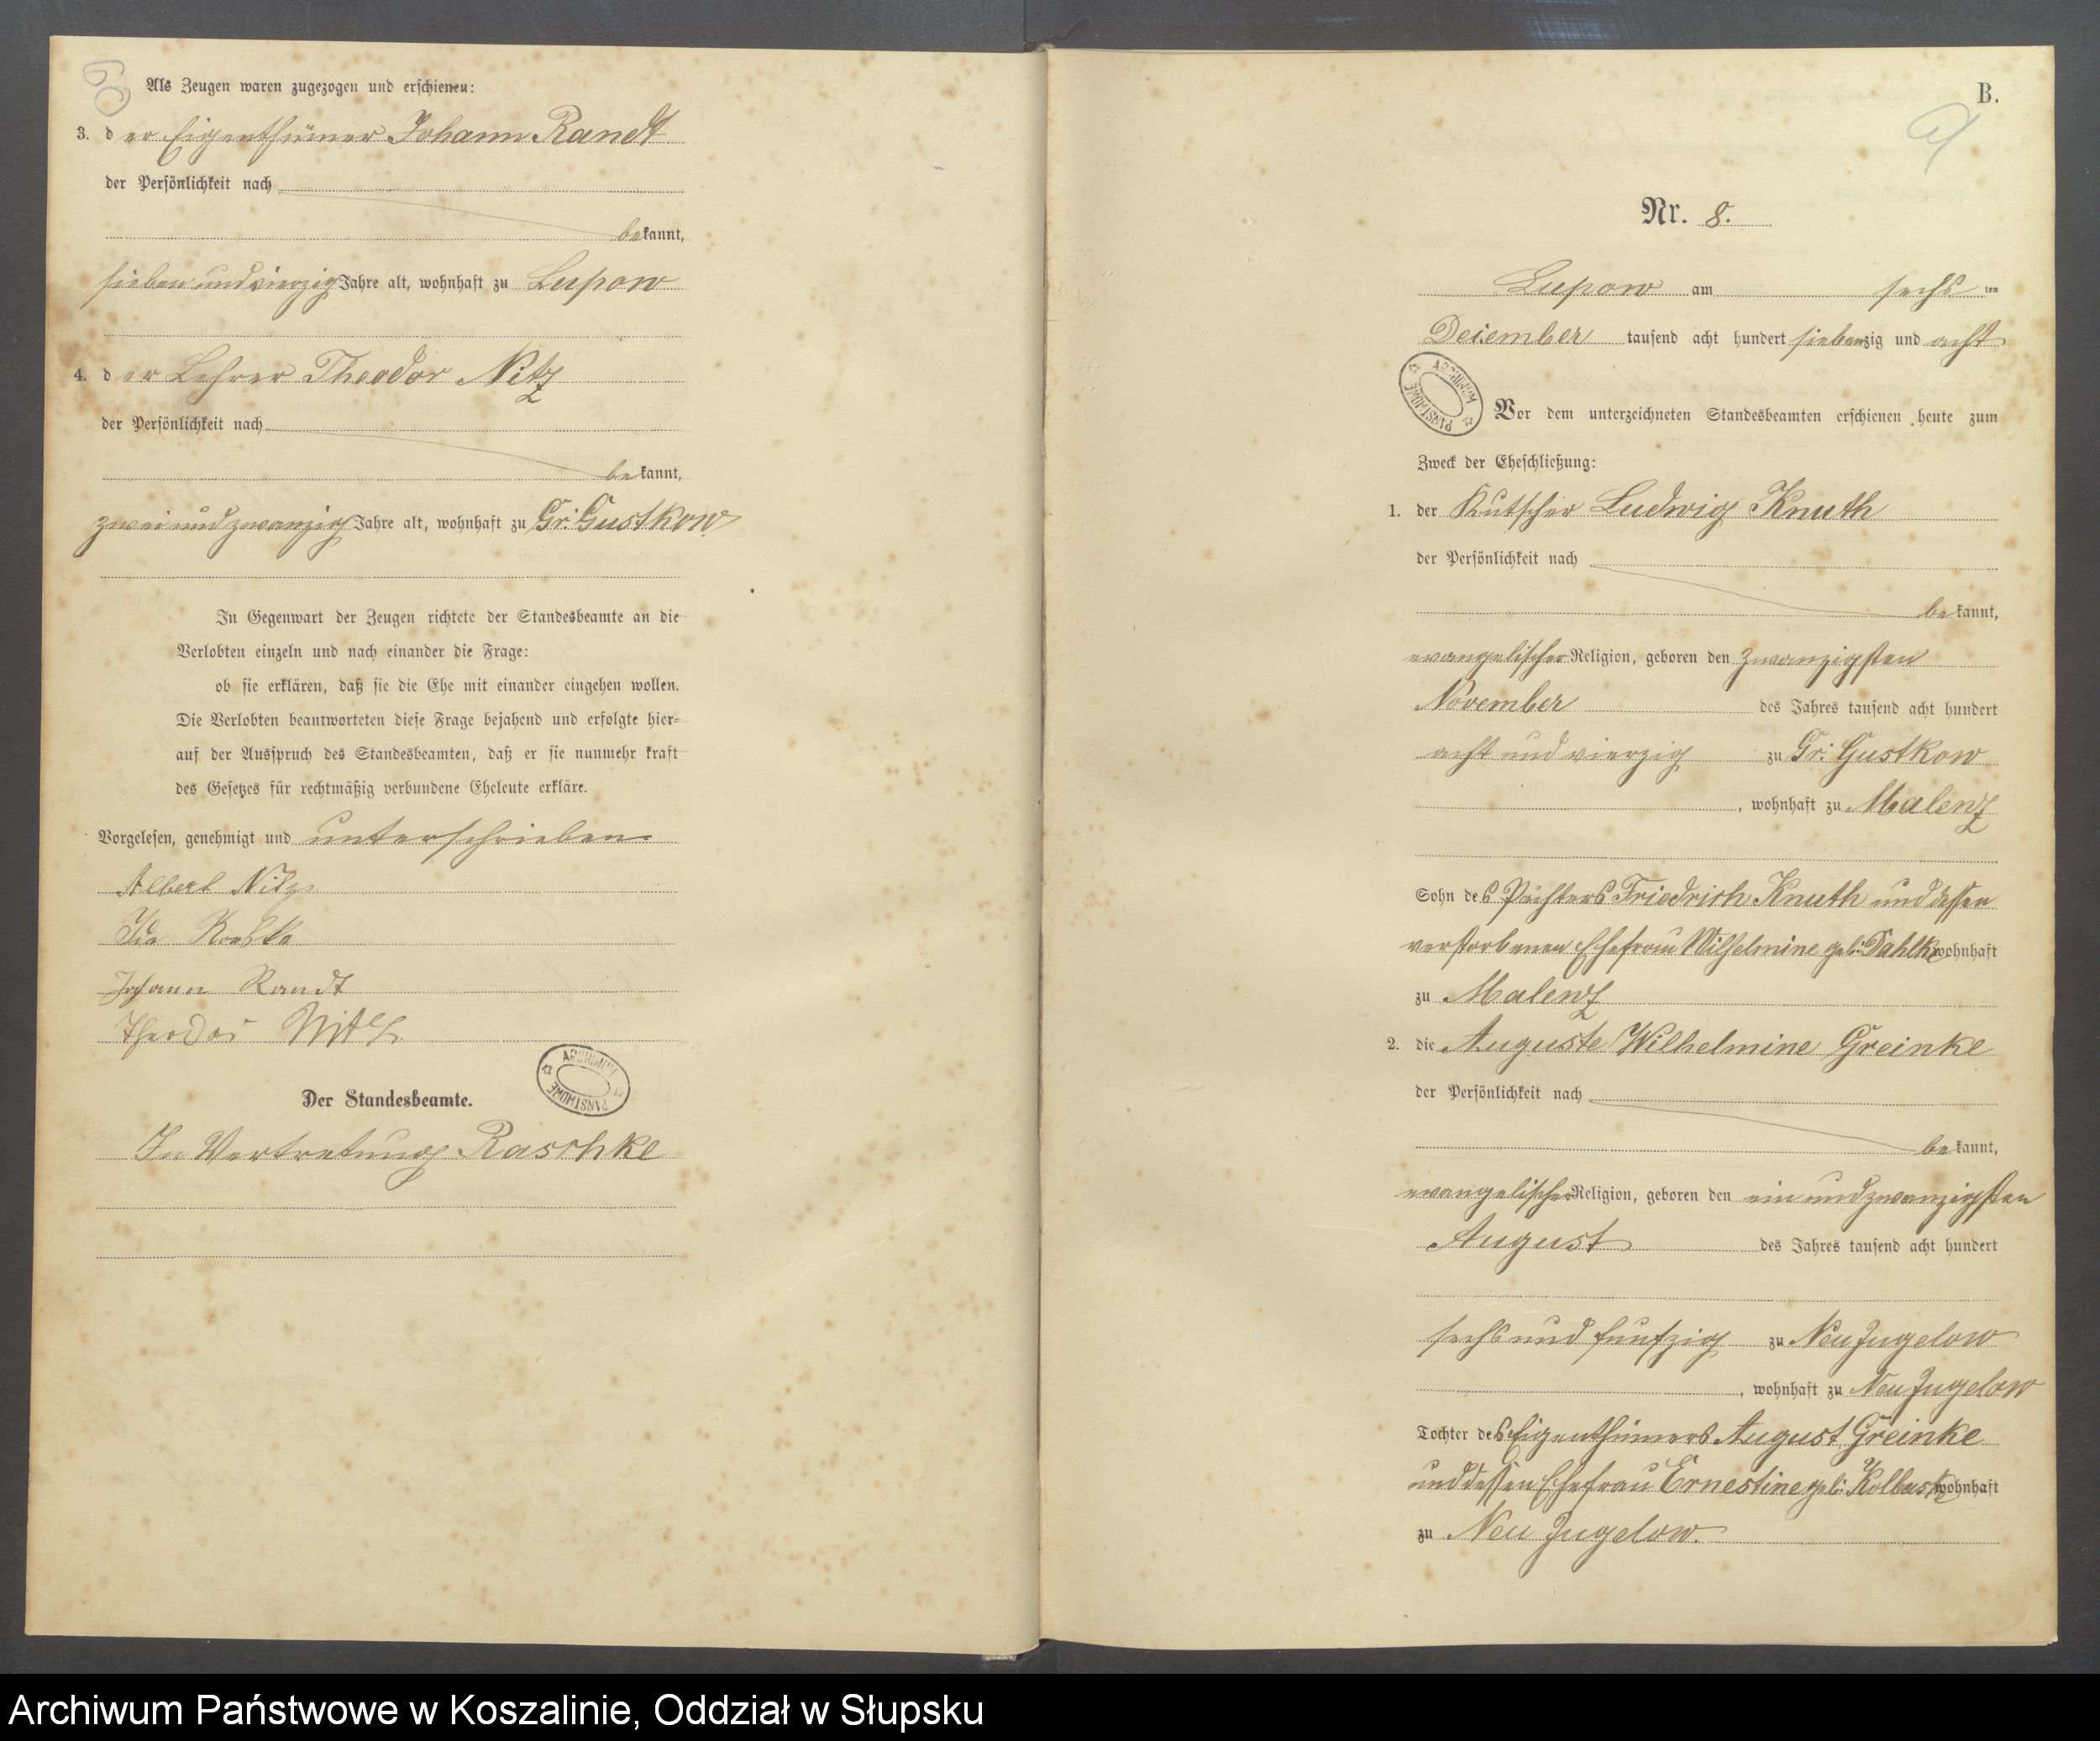 Als Zeugen waren zugezogen und erschienen:
3. der Eigenthümer Johann Randt
der Persönlichkeit nach
bekannt,
sieben und vierzig Jahre alt, wohnhaft zu Lupow
4. der Lehrer Theodor Nitz
der Persönlichkeit nach
bekannt,
zwei und zwanzig Jahre alt, wohnhaft zu Gr: Gustkow
In Gegenwart der Zeugen richtete der Standesbeamte an die
Verlobten einzeln und nach einander die Frage:
ob sie erklären, daß sie die Ehe mit einander eingehen wollen.
Die Verlobten beantworteten diese Frage bejahend und erfolgte hier-
auf der Ausspruch des Standesbeamten, daß er sie nunmehr kraft
des Gesetzes für rechtmäßig verbundene Eheleute erkläre.
Vorgelesen, genehmigt und unterschrieben
Albert Nitz
Ida
Johann Randt
Theodor Nitz
ARCHIWUM PAŃSTWOWE
Der Standesbeamte.
In Vertretung Raschke
B.
Nr. 8.
Lupow am sechsten
Dezember tausend acht hundert siebenzig und acht
ARCHIWUM PAŃSTWOWE
Vor dem unterzeichneten Standesbeamten erschienen heute zum
Zweck der Eheschließung:
1. der Kutscher Ludwig Knuth
der Persönlichkeit nach
bekannt,
evangelischer Religion, geboren den zwanzigsten
November des Jahres tausend acht hundert
acht und vierzig zu Gr: Gustkow
, wohnhaft zu Malenz
Sohn des Pächters Friedrich Knuth und dessen
verstorbenen Ehefrau Wilhelmine geb: Dahlke wohnhaft
zu Malenz
2. die Auguste Wilhelmine Greinke
der Persönlichkeit nach
bekannt,
evangelischer Religion, geboren den ein und zwanzigsten
August des Jahres tausend acht hundert
sechs und funfzig zu Neu Jugelow
, wohnhaft zu Neu Jugelow
Tochter des Eigenthümers August Greinke
und dessen Ehefrau Ernestine geb: wohnhaft
zu Neu Jugelow.
Archiwum Państwowe w Koszalinie, Oddział w Słupsku